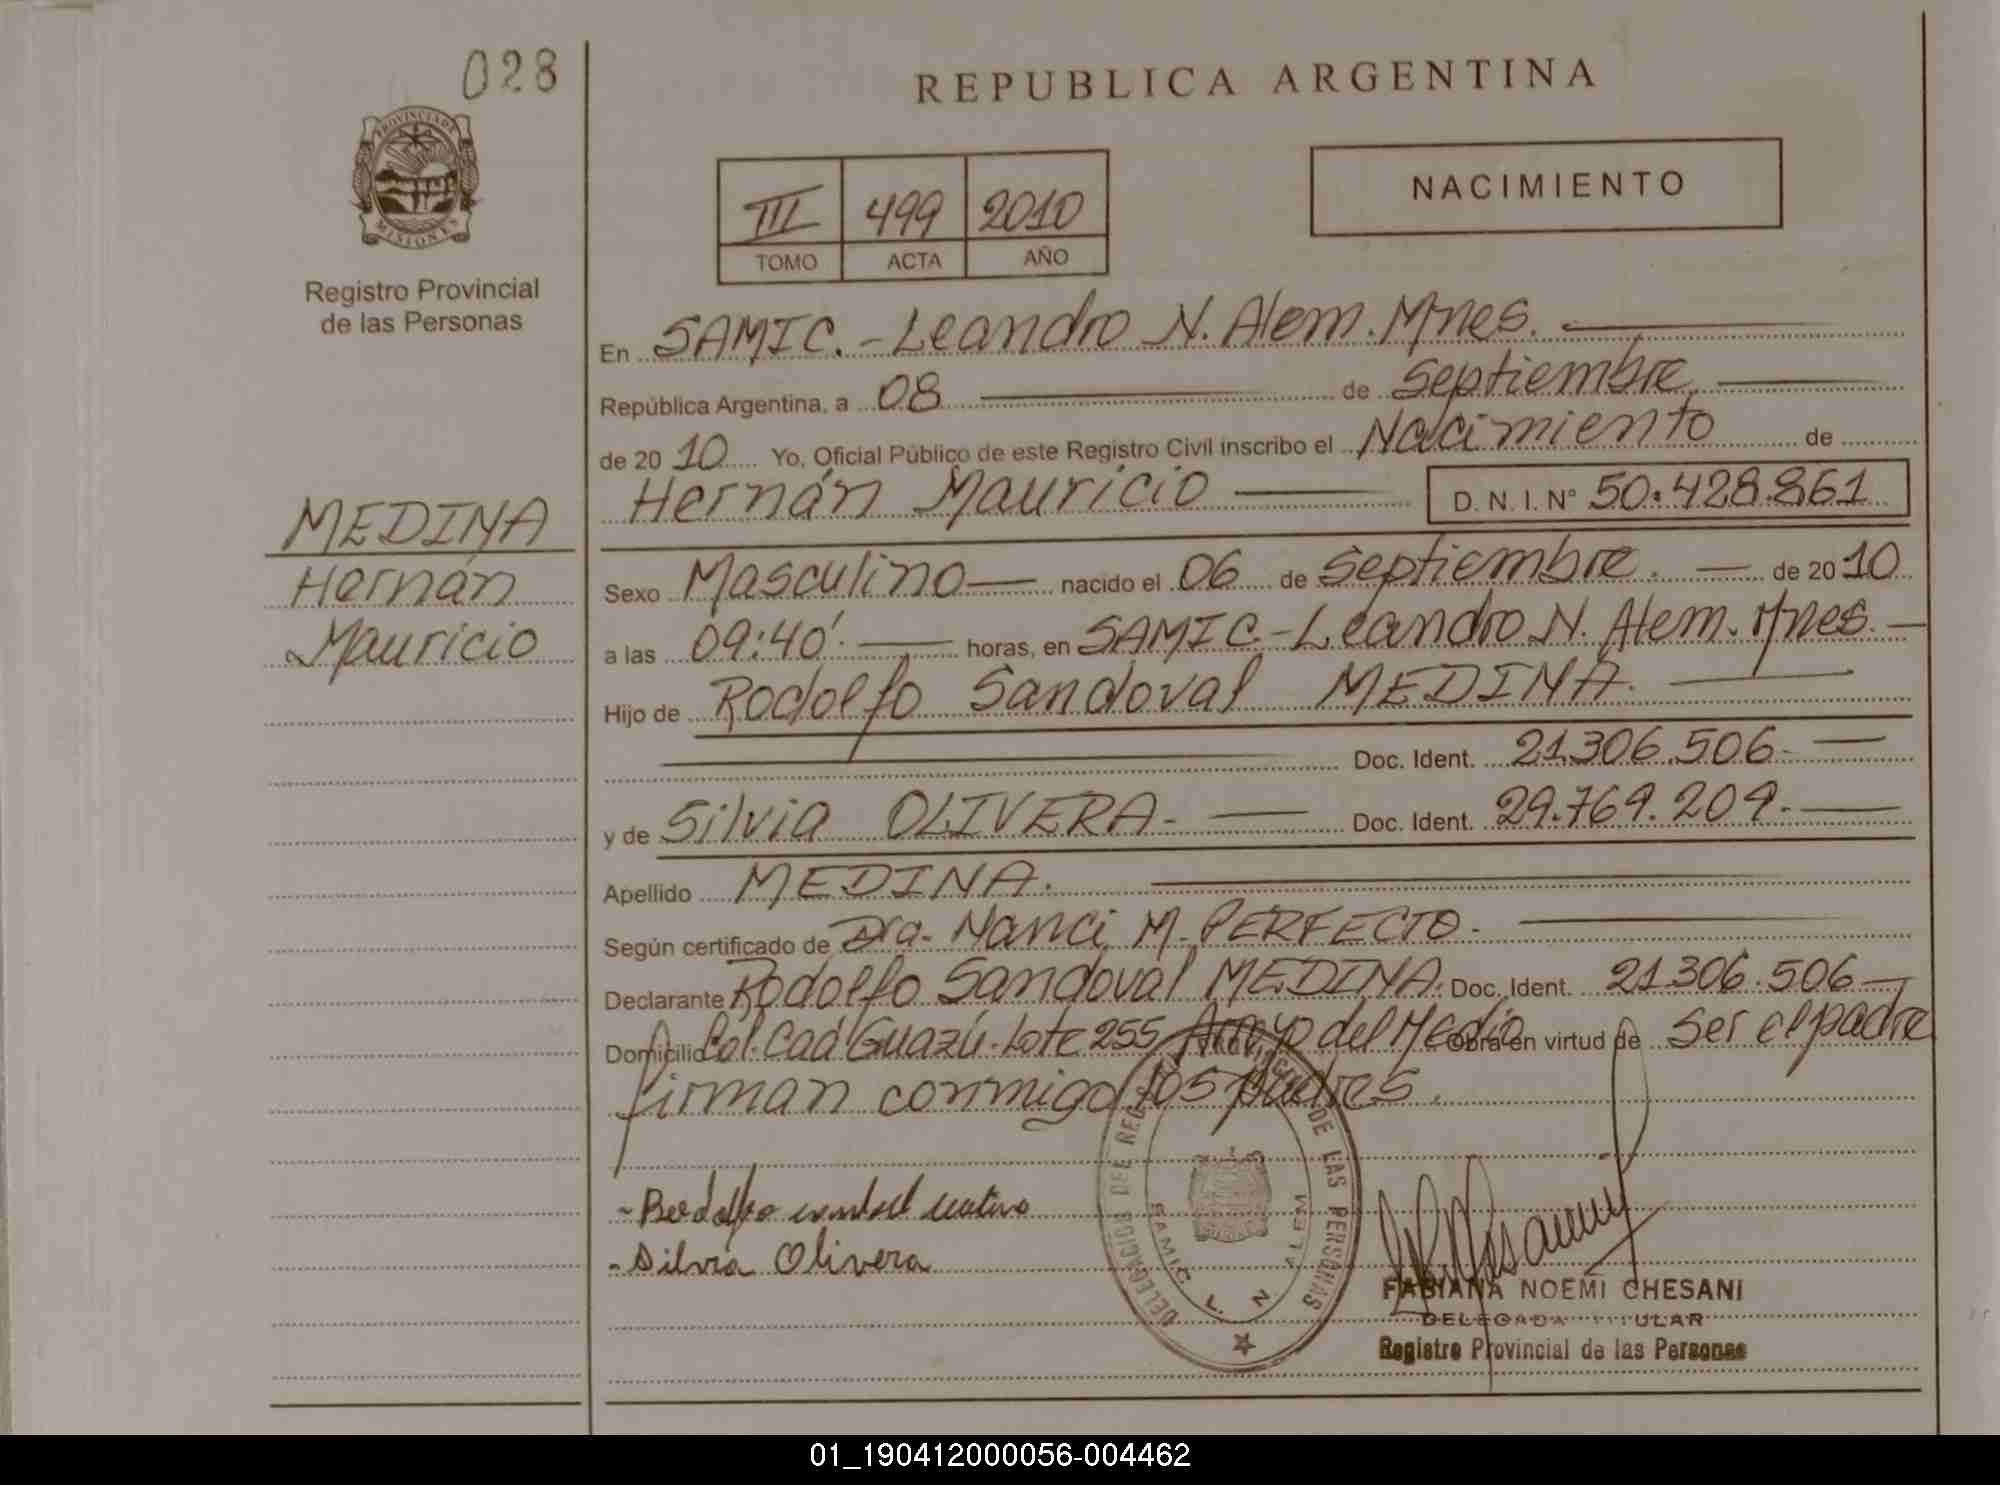 028
REPUBLICA ARGENTINA
PROVINCIA DE
MISIONES
Registro Provincial
de las Personas
III 499 2010
TOMO ACTA AÑO
NACIMIENTO
En SAMIC.-Leandro N. Alem. Mnes.
República Argentina, a 08 de Septiembre
de 2010 Yo, Oficial Público de este Registro Civil inscribo el Nacimiento de
Hernán Mauricio D. N. I. N° 50.428.861
MEDINA
Hernán
Mauricio
Sexo Masculino nacido el 06 de Septiembre. de 2010
a las 09:40' horas, en SAMIC.-Leandro N. Alem. Mnes.
Hijo de Rodolfo Sandoval MEDINA.
Doc. Ident. 21.306.506.
y de Silvia OLIVERA. Doc. Ident. 29.769.209.
Apellido MEDINA.
Según certificado de Dra. Nanci M. PERFECTO.
Declarante Rodolfo Sandoval MEDINA. Doc. Ident. 21306.506
Domicilio Col. Cad Guazú. Lote 255 Arroyo del Medio Obra en virtud de ser el padre
firman conmigo los padres.
- Silvia Olivera
DELEGACION DEL REGISTRO PROVINCIAL DE LAS PERSONAS
SAMIC. L. N. ALEM
FABIANA NOEMI CHESANI
DELEGADA TITULAR
Registro Provincial de las Personas
01_190412000056-004462